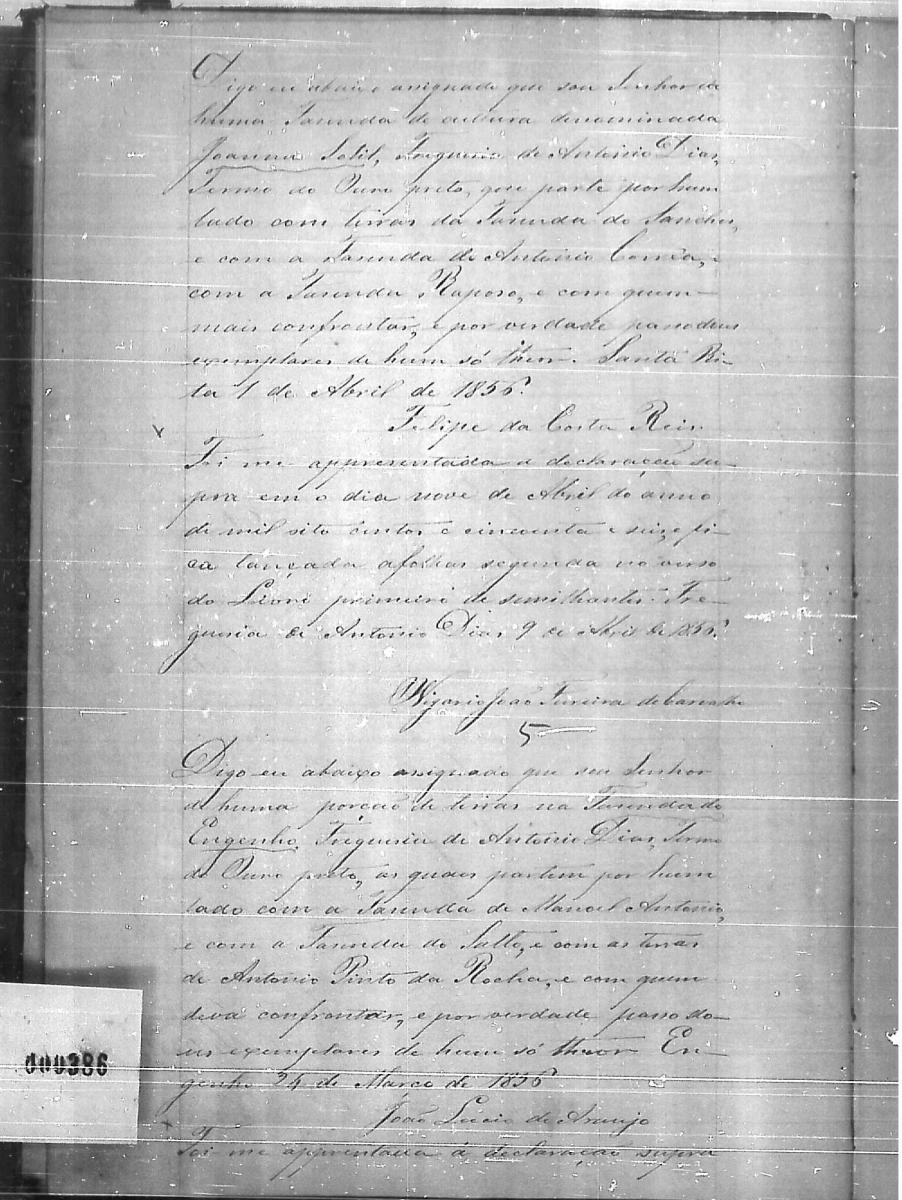 Digo eu abaixo asignado que sou Senhor de
huma Fasenda de cultura denominada
Joanna Solil, Freguesia de Antonio Dias,
Termo do Ouro preto, que parte por hum
lado com terras da Fasenda do Sanches,
e com a Fasenda de Antonio Corrêa, e
com a Fasenda Raposo, e com quem
mais confrontar, e por verdade passo dous
exemplares de hum só theor. Santa Ri-
ta 1 de Abril de 1856.
Felipe da Costa Reis
Foi me appresentada a declaração su-
pra em o dia nove de Abril do anno
de mil oito centos e cincoenta e seis, e fi-
ca lançada a folhas segunda no verso
do Livro primeiro de semilhantes. Fre-
guesia de Antonio Dias 9 de Abril de 1856.
Vigario João Ferreira de Carvalho
5
Digo eu abaixo asignado que sou Senhor
de huma porção de terras na Fasenda do
Engenho, Freguesia de Antonio Dias, Termo
do Ouro preto, as quaes partem por hum
lado com a Fasenda de Manoel Antonio,
e com a Fasenda do Salto, e com as terras
de Antonio Pinto da Rocha, e com quem
deva confrontar, e por verdade passo do-
us exemplares de hum só theor En-
genho 24 de Março de 1856
João Lucio de Araujo
Foi me apprentada a declaração supra
000386